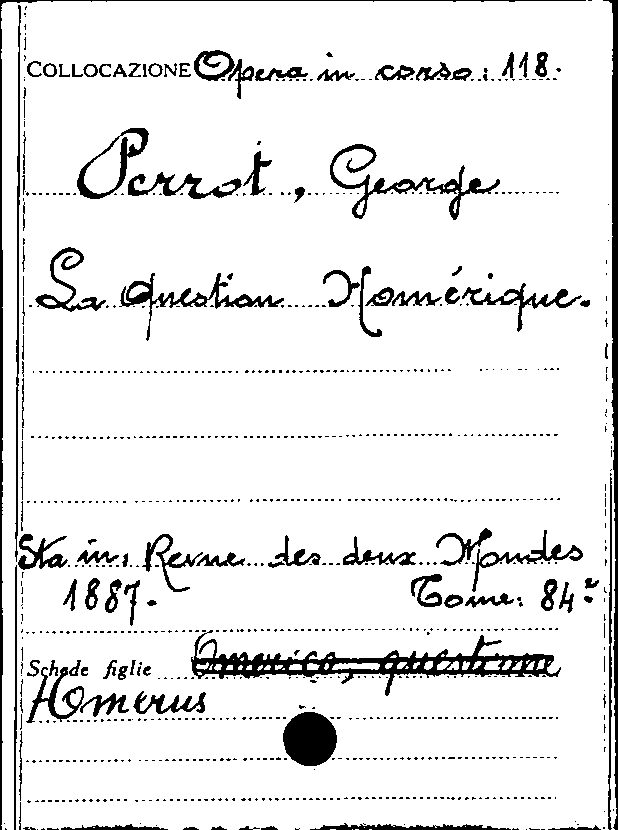 COLLOCAZIONE Opera in corso: 118.
Perrot, George
La question Homérique.
Sta in: Revue des deux Mondes
1887. Tome: 84º
Schede figlie Omerica, questione
Homerus